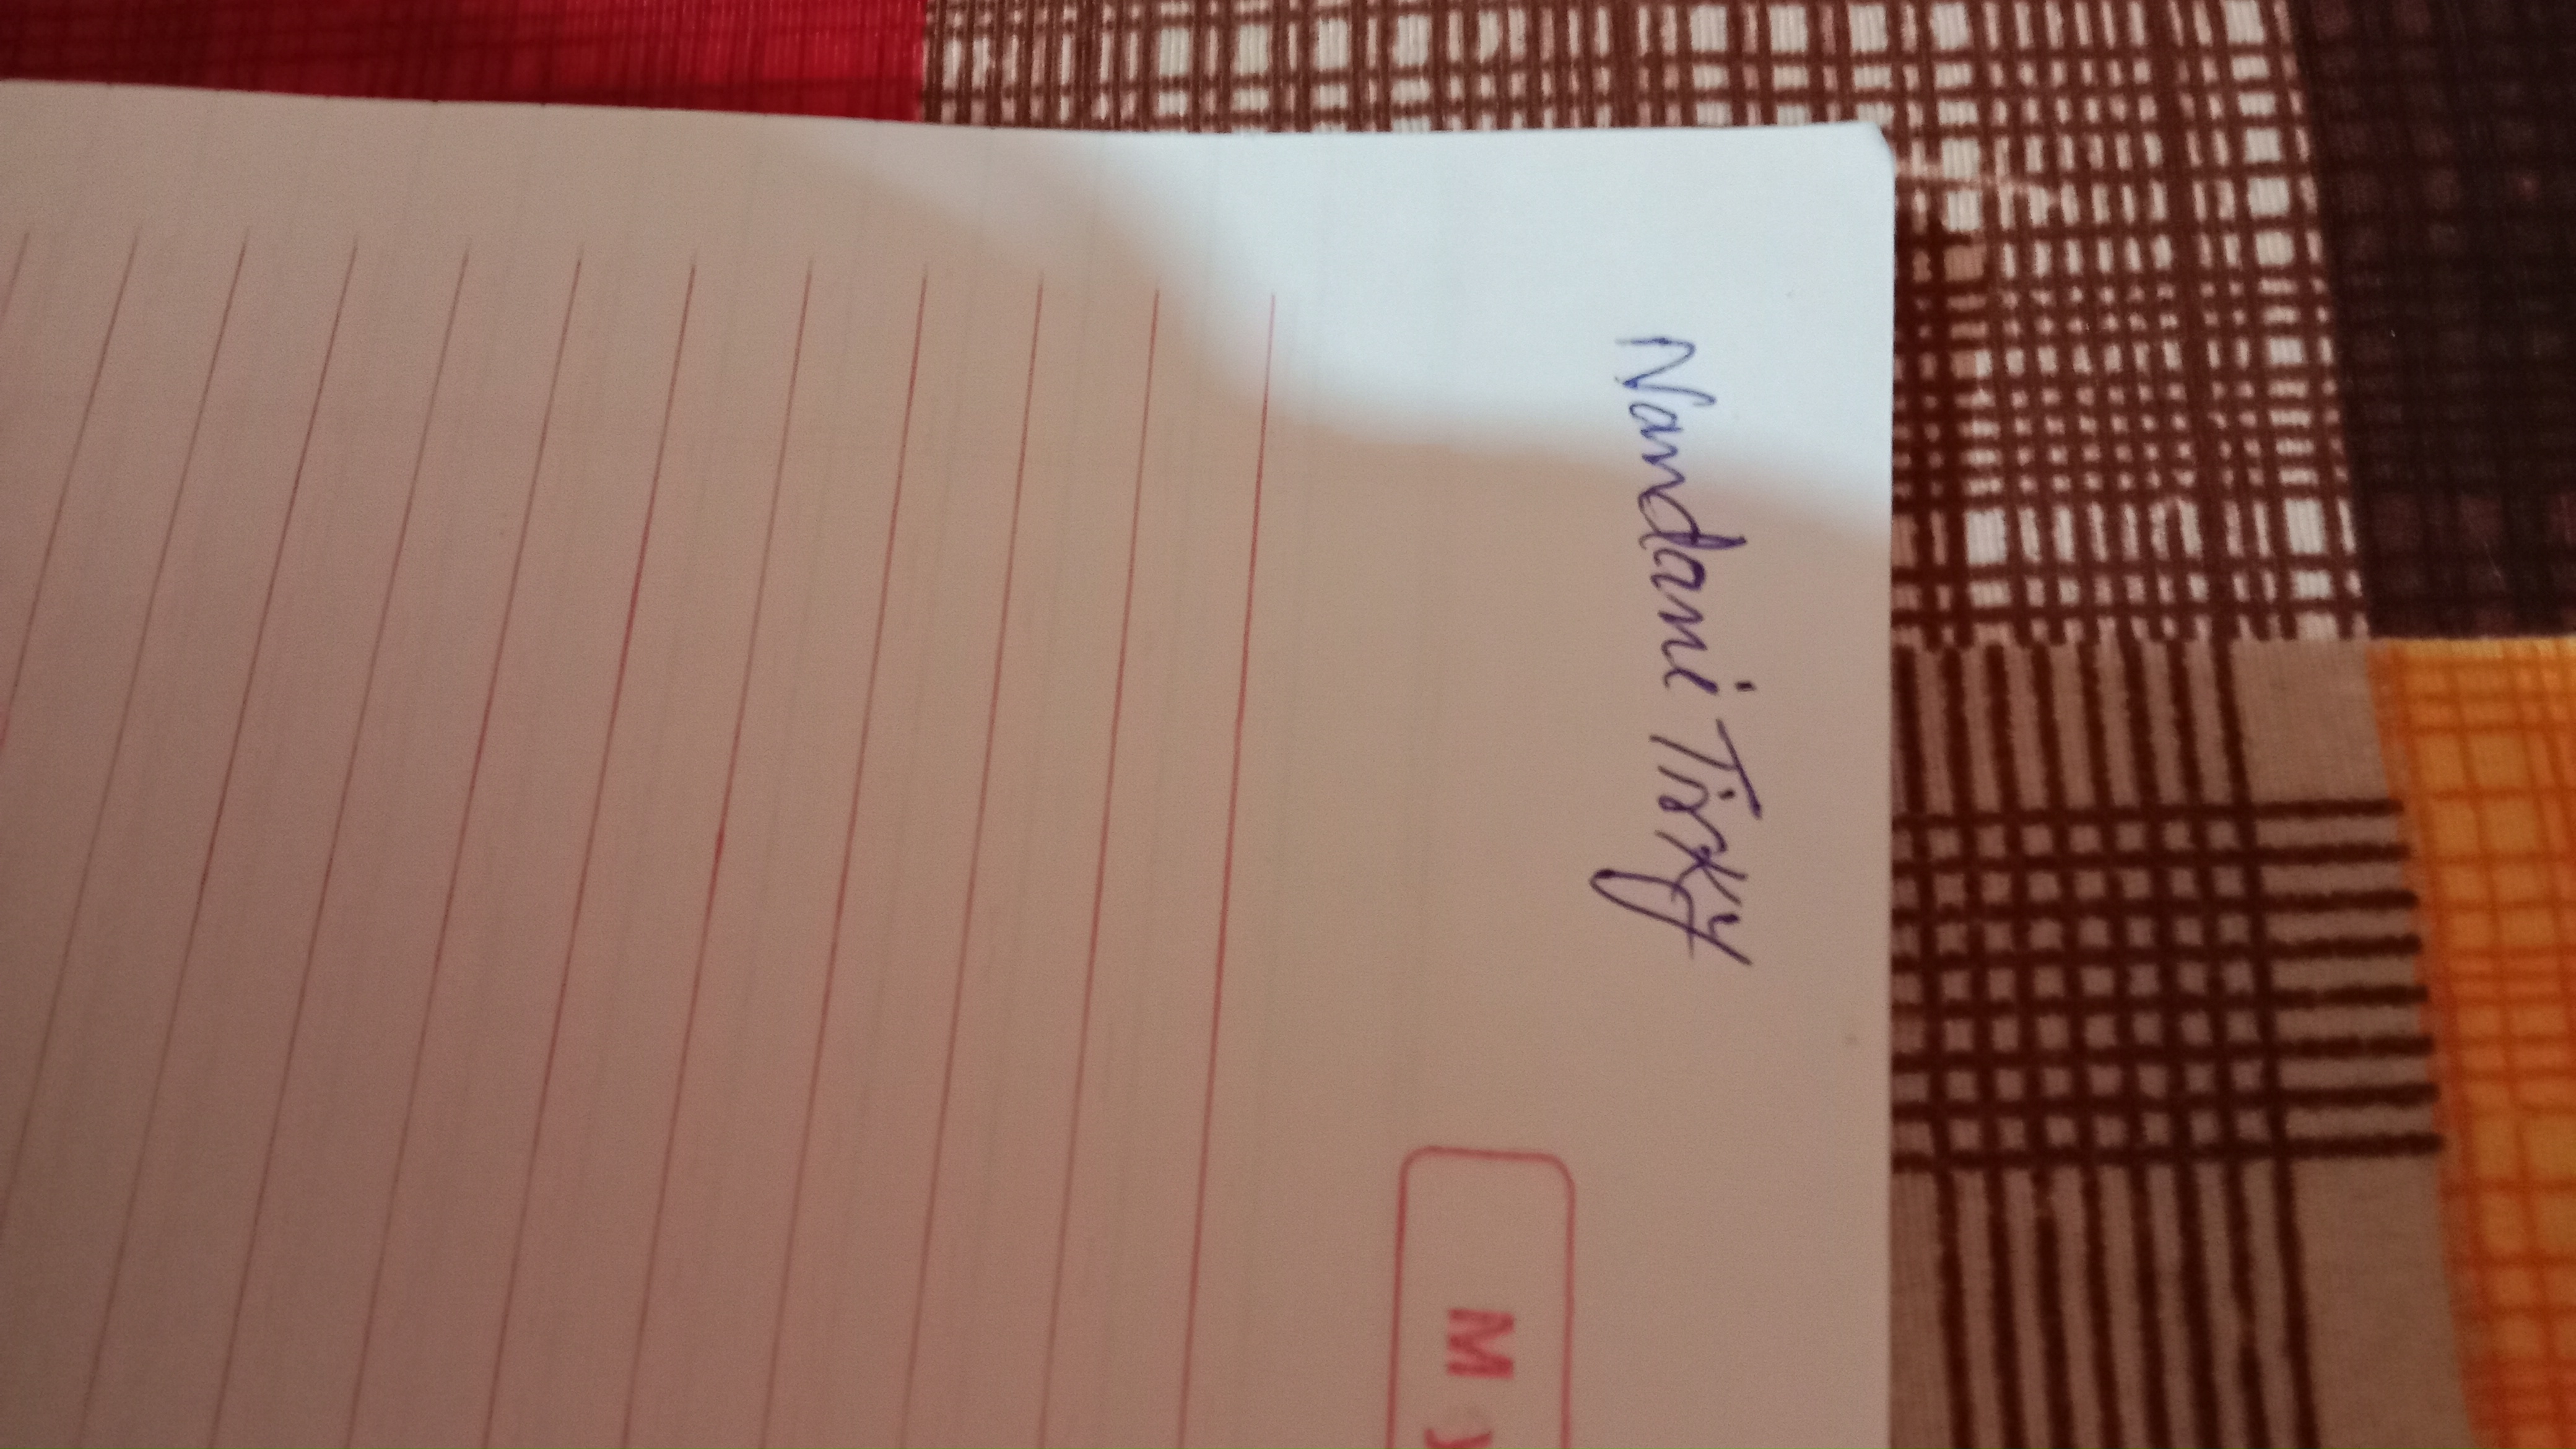 Nandani Tirky
M